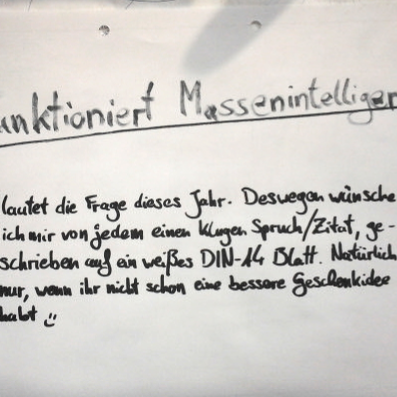 unktioniert Massenintelligen
lautet die Frage dieses Jahr. Deswegen wünsche
ich mir von jedem einen klugen Spruch/Zitat, ge-
schrieben auf ein weißes DIN-A4 Blatt. Natürlich
nur, wenn ihr nicht schon eine bessere Geschenkidee
habt ü